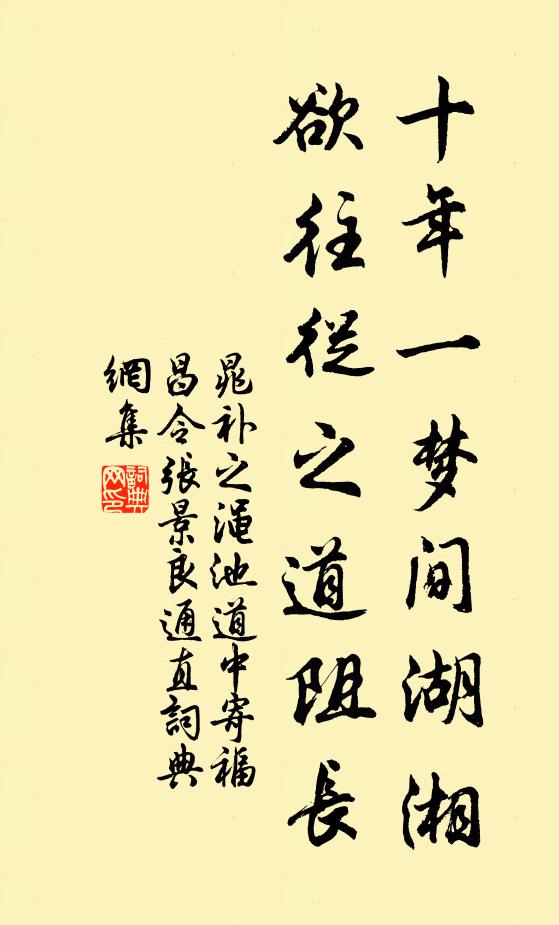 十年一梦间湖湘
欲往從之道阻長
晁补之渑池道中寄福
昌令張景良通直詞典
網集
詞典
网印